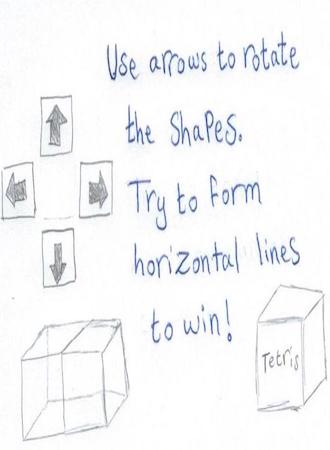 Use arrows to rotate
the Shapes.
Try to form
horizontal lines
to win!
Tetris